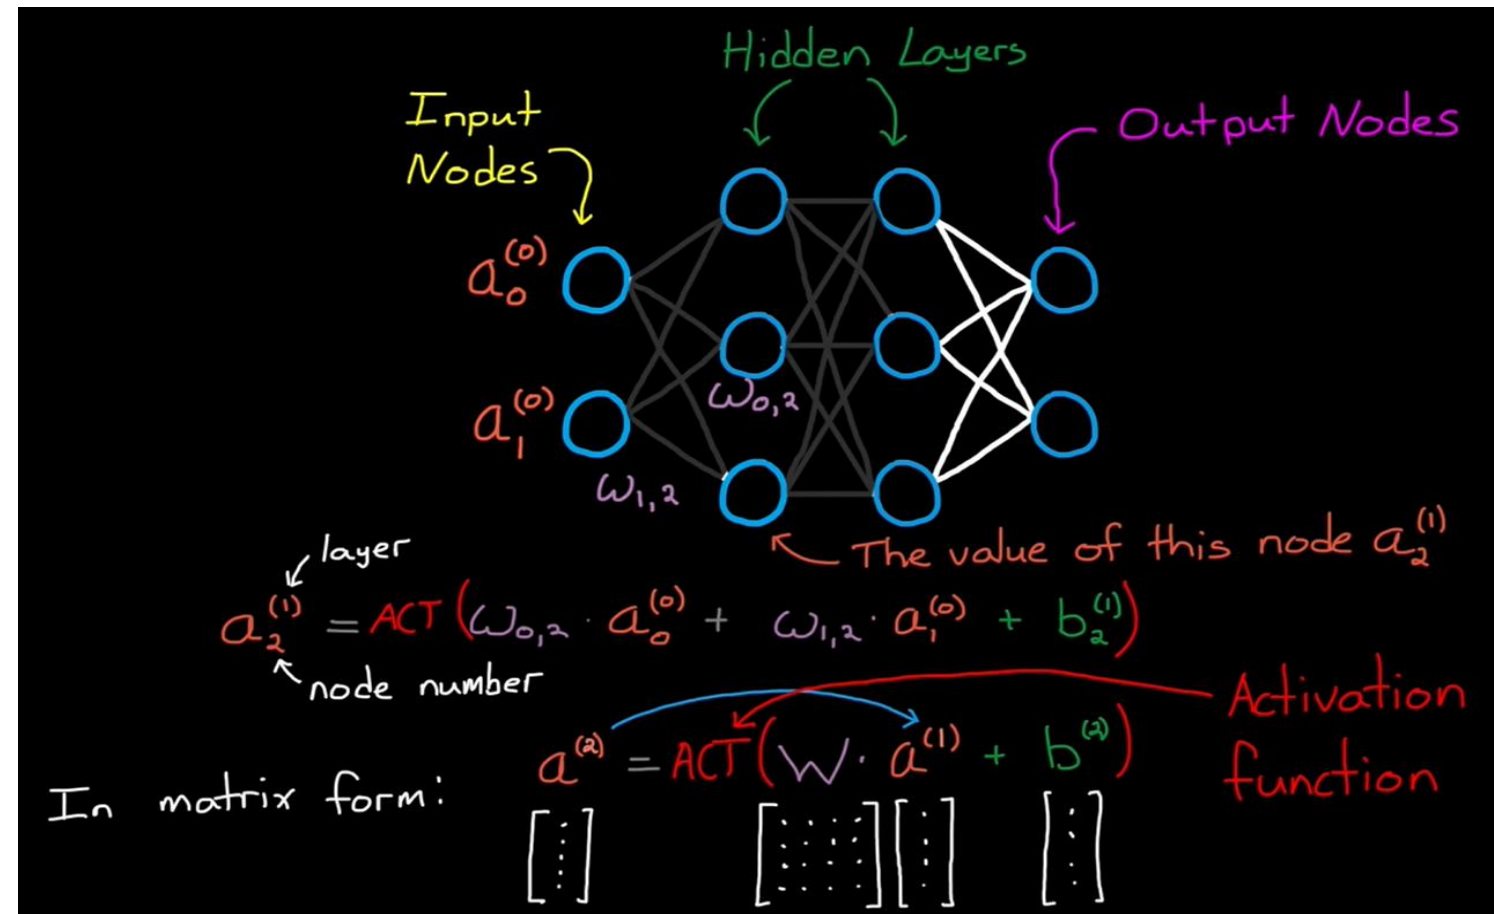 Hidden Layers
Input
Nodes
Output Nodes
a₀⁽⁰⁾
a₁⁽⁰⁾
ω₀,₂
ω₁,₂
The value of this node a₂⁽¹⁾
layer
a₂⁽¹⁾ = ACT(ω₀,₂ · a₀⁽⁰⁾ + ω₁,₂ · a₁⁽⁰⁾ + b₂⁽¹⁾)
node number
Activation
function
In matrix form:
a⁽²⁾ = ACT(W · a⁽¹⁾ + b⁽²⁾)